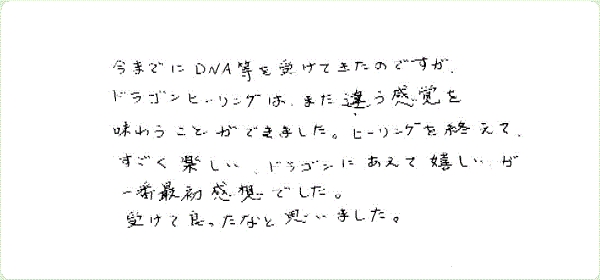 今までにDNA等を受けてきたのですが、
ドラゴンヒーリングは、また違う感覚を
味わうことができました。ヒーリングを終えて、
すごく楽しい、ドラゴンにあえて嬉しい、が
一番最初感想でした。
受けて良ったなと思いました。